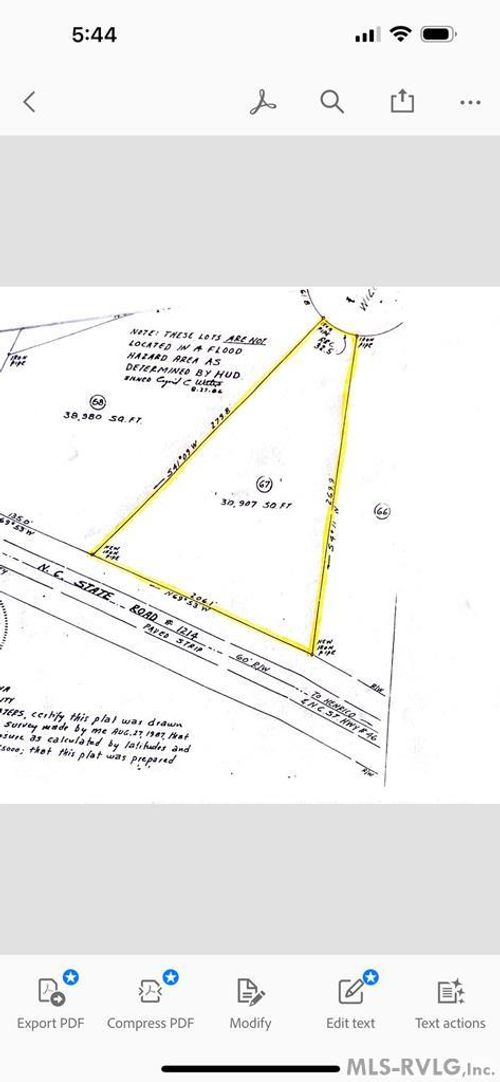 5:44
WIL
NOTE: THESE LOTS ARE NOT
LOCATED IN A FLOOD
HAZARD AREA AS
DETERMINED BY HUD.
SIGNED Cyril C Waters
8.27.86
IRON
PIPE
ARC
32.5
IRON
PIPE
IRON
PIPE
68
38,980 SQ.FT.
279.8'
S41°09'W
67
30,907 SQ FT
269.9'
66
135.0'
69°53'W
NEW
IRON
PIPE
206.1'
N69°53'W
N.C. STATE ROAD # 1214
PAVED STRIP
60' R/W
NEW
IRON
PIPE
R/W
TO HENRICO
& N.C. ST. HWY # 46
R/W
TERS, certify this plat was drawn
survey made by me AUG. 27, 1987, that
osure as calculated by latitudes and
5000; that this plat was prepared
Export PDF
Compress PDF
Modify
Edit text
Text actions
MLS-RVLG,Inc.